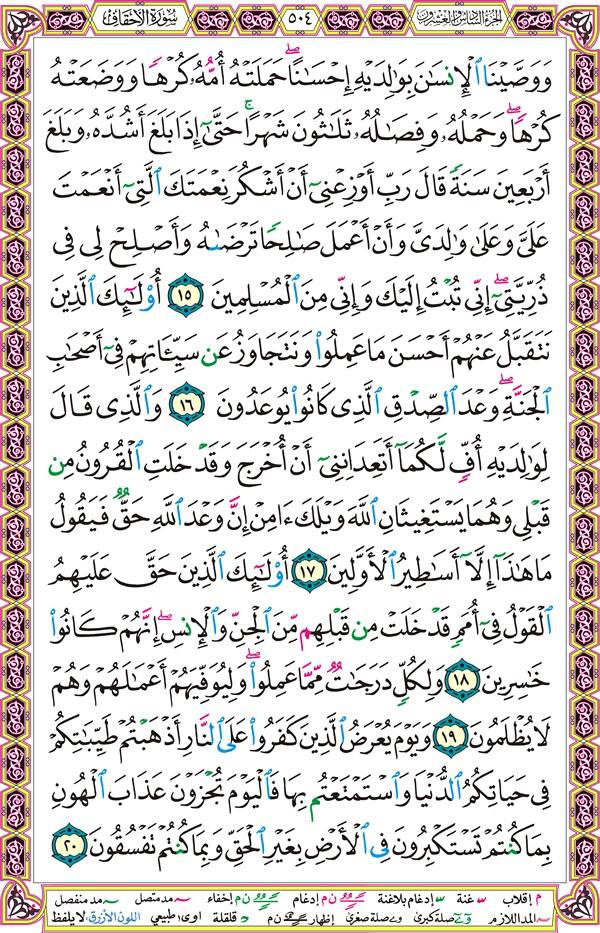 سورة الأحقاف ٥٠٤ الجزء السادس والعشرون
وَوَصَّيْنَا الْإِنسَانَ بِوَالِدَيْهِ إِحْسَانًا ۖ حَمَلَتْهُ أُمُّهُ كُرْهًا وَوَضَعَتْهُ
كُرْهًا ۖ وَحَمْلُهُ وَفِصَالُهُ ثَلَاثُونَ شَهْرًا ۚ حَتَّىٰ إِذَا بَلَغَ أَشُدَّهُ وَبَلَغَ
أَرْبَعِينَ سَنَةً قَالَ رَبِّ أَوْزِعْنِي أَنْ أَشْكُرَ نِعْمَتَكَ الَّتِي أَنْعَمْتَ
عَلَيَّ وَعَلَىٰ وَالِدَيَّ وَأَنْ أَعْمَلَ صَالِحًا تَرْضَاهُ وَأَصْلِحْ لِي فِي
ذُرِّيَّتِي ۖ إِنِّي تُبْتُ إِلَيْكَ وَإِنِّي مِنَ الْمُسْلِمِينَ ١٥ أُولَٰئِكَ الَّذِينَ
نَتَقَبَّلُ عَنْهُمْ أَحْسَنَ مَا عَمِلُوا وَنَتَجَاوَزُ عَن سَيِّئَاتِهِمْ فِي أَصْحَابِ
الْجَنَّةِ ۖ وَعْدَ الصِّدْقِ الَّذِي كَانُوا يُوعَدُونَ ١٦ وَالَّذِي قَالَ
لِوَالِدَيْهِ أُفٍّ لَّكُمَا أَتَعِدَانِنِي أَنْ أُخْرَجَ وَقَدْ خَلَتِ الْقُرُونُ مِن
قَبْلِي وَهُمَا يَسْتَغِيثَانِ اللَّهَ وَيْلَكَ ءَامِنْ إِنَّ وَعْدَ اللَّهِ حَقٌّ فَيَقُولُ
مَا هَٰذَا إِلَّا أَسَاطِيرُ الْأَوَّلِينَ ١٧ أُولَٰئِكَ الَّذِينَ حَقَّ عَلَيْهِمُ
الْقَوْلُ فِي أُمَمٍ قَدْ خَلَتْ مِن قَبْلِهِم مِّنَ الْجِنِّ وَالْإِنسِ ۖ إِنَّهُمْ كَانُوا
خَاسِرِينَ ١٨ وَلِكُلٍّ دَرَجَاتٌ مِّمَّا عَمِلُوا ۖ وَلِيُوَفِّيَهُمْ أَعْمَالَهُمْ وَهُمْ
لَا يُظْلَمُونَ ١٩ وَيَوْمَ يُعْرَضُ الَّذِينَ كَفَرُوا عَلَى النَّارِ أَذْهَبْتُمْ طَيِّبَاتِكُمْ
فِي حَيَاتِكُمُ الدُّنْيَا وَاسْتَمْتَعْتُم بِهَا فَالْيَوْمَ تُجْزَوْنَ عَذَابَ الْهُونِ
بِمَا كُنتُمْ تَسْتَكْبِرُونَ فِي الْأَرْضِ بِغَيْرِ الْحَقِّ وَبِمَا كُنتُمْ تَفْسُقُونَ ٢٠
م إقلاب غنة إدغام بلاغنة ن م إدغام إخفاء مد متصل مد منفصل
المد اللازم صلة كبرى صلة صغرى إظهار ن م قلقلة اوى: طبيعي اللون الأزرق: لا يلفظ